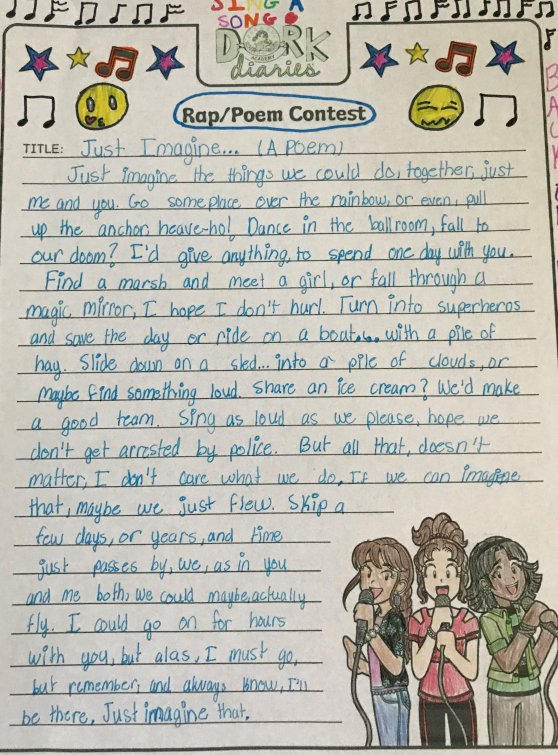 SING A
SONG
DORK
ACADEMY
diaries
Rap/Poem Contest
TITLE: Just Imagine... (A Poem)
Just imagine the things we could do, together, just
me and you. Go someplace over the rainbow, or even, pull
up the anchor, heave-ho! Dance in the ballroom, fall to
our doom? I'd give anything, to spend one day with you.
Find a marsh and meet a girl, or fall through a
magic mirror, I hope I don't hurl. Turn into superheros
and save the day or ride on a boat.... with a pile of
hay. Slide down on a sled... into a pile of clouds, or
maybe find something loud. Share an ice cream? We'd make
a good team. Sing as loud as we please, hope we
don't get arrested by police. But all that, doesn't
matter, I don't care what we do, If we can imagine
that, maybe we just flew. Skip a
few days, or years, and time
just passes by, we, as in you
and me both, we could maybe, actually
fly. I could go on for hours
with you, but alas, I must go,
but remember, and always know, I'll
be there, Just imagine that.